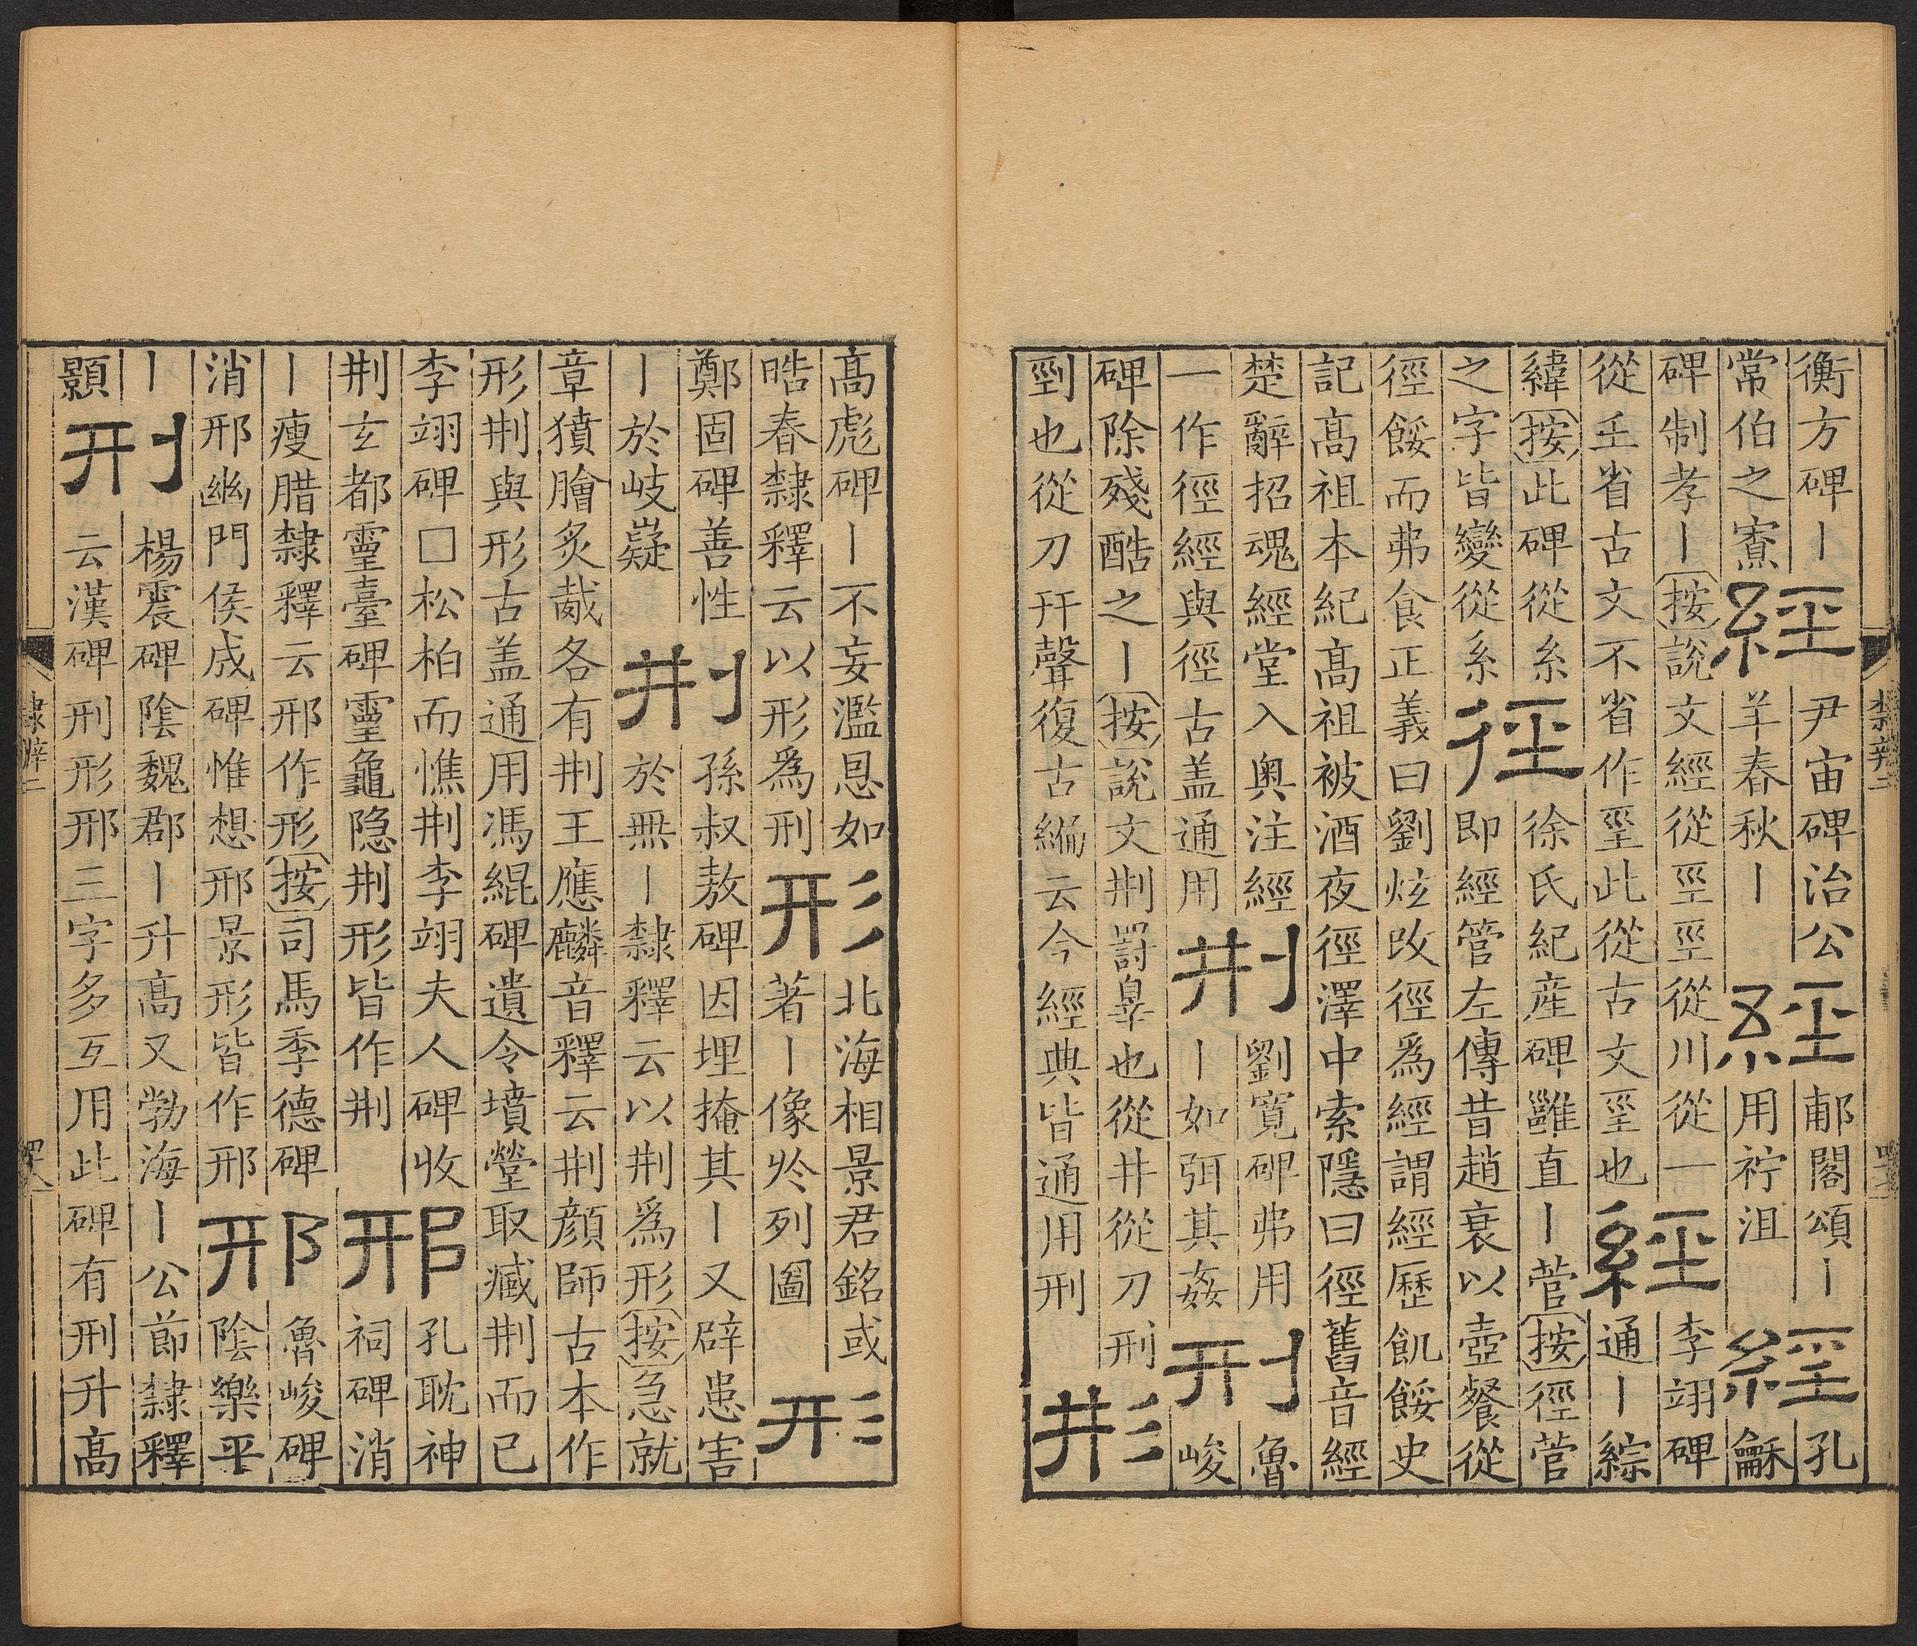 衡方碑丨
常伯之寮
經
尹宙碑治公
羊春秋丨
經
郙閣頌丨
用袊沮
經
孔
龢
碑制孝丨按說文經從巠巠從川從一
從𡈼省古文不省作坙此從古文坙也
經
李翊碑
通丨綜
緯按此碑從糸
之字皆變從系
徑
徐氏紀産碑雖直丨菅按徑菅
即經管左傳昔趙衰以壺餐從
徑餒而弗食正義曰劉炫改徑爲經謂經歷飢餒史
記高祖本紀高祖被酒夜徑澤中索隱曰徑舊音經
楚辭招魂經堂入奥注經
一作徑經與徑古盖通用
荆
劉寛碑弗用
丨如弭其姦
刑
魯
峻
碑除殘酷之丨按說文荆罸辠也從井從刀刑
剄也從刀幵聲復古編云今經典皆通用刑
形
高彪碑丨不妄濫恩如
晧春隸釋云以形爲刑
形
北海相景君銘或
著丨像於列圖
形
鄭固碑善性
丨於岐嶷
荆
孫叔敖碑因埋掩其丨又辟患害
於無丨隸釋云以荆爲形按急就
章獖膾炙胾各有荆王應麟音釋云荆顔師古本作
形荆與形古盖通用馮緄碑遺令墳塋取臧荆而已
李翊碑□松柏而憔荆李翊夫人碑收
荆玄都靈臺碑靈龜隐荆形皆作荆
邢
孔耽神
祠碑消
丨瘦腊隸釋云邢作形按司馬季德碑
消邢幽門侯成碑惟想邢景形皆作邢
邢
魯峻碑
陰樂平
丨
顥
刑
楊震碑陰魏郡丨升高又勃海丨公節隸釋
云漢碑刑形邢三字多互用此碑有刑升高
隸辨二